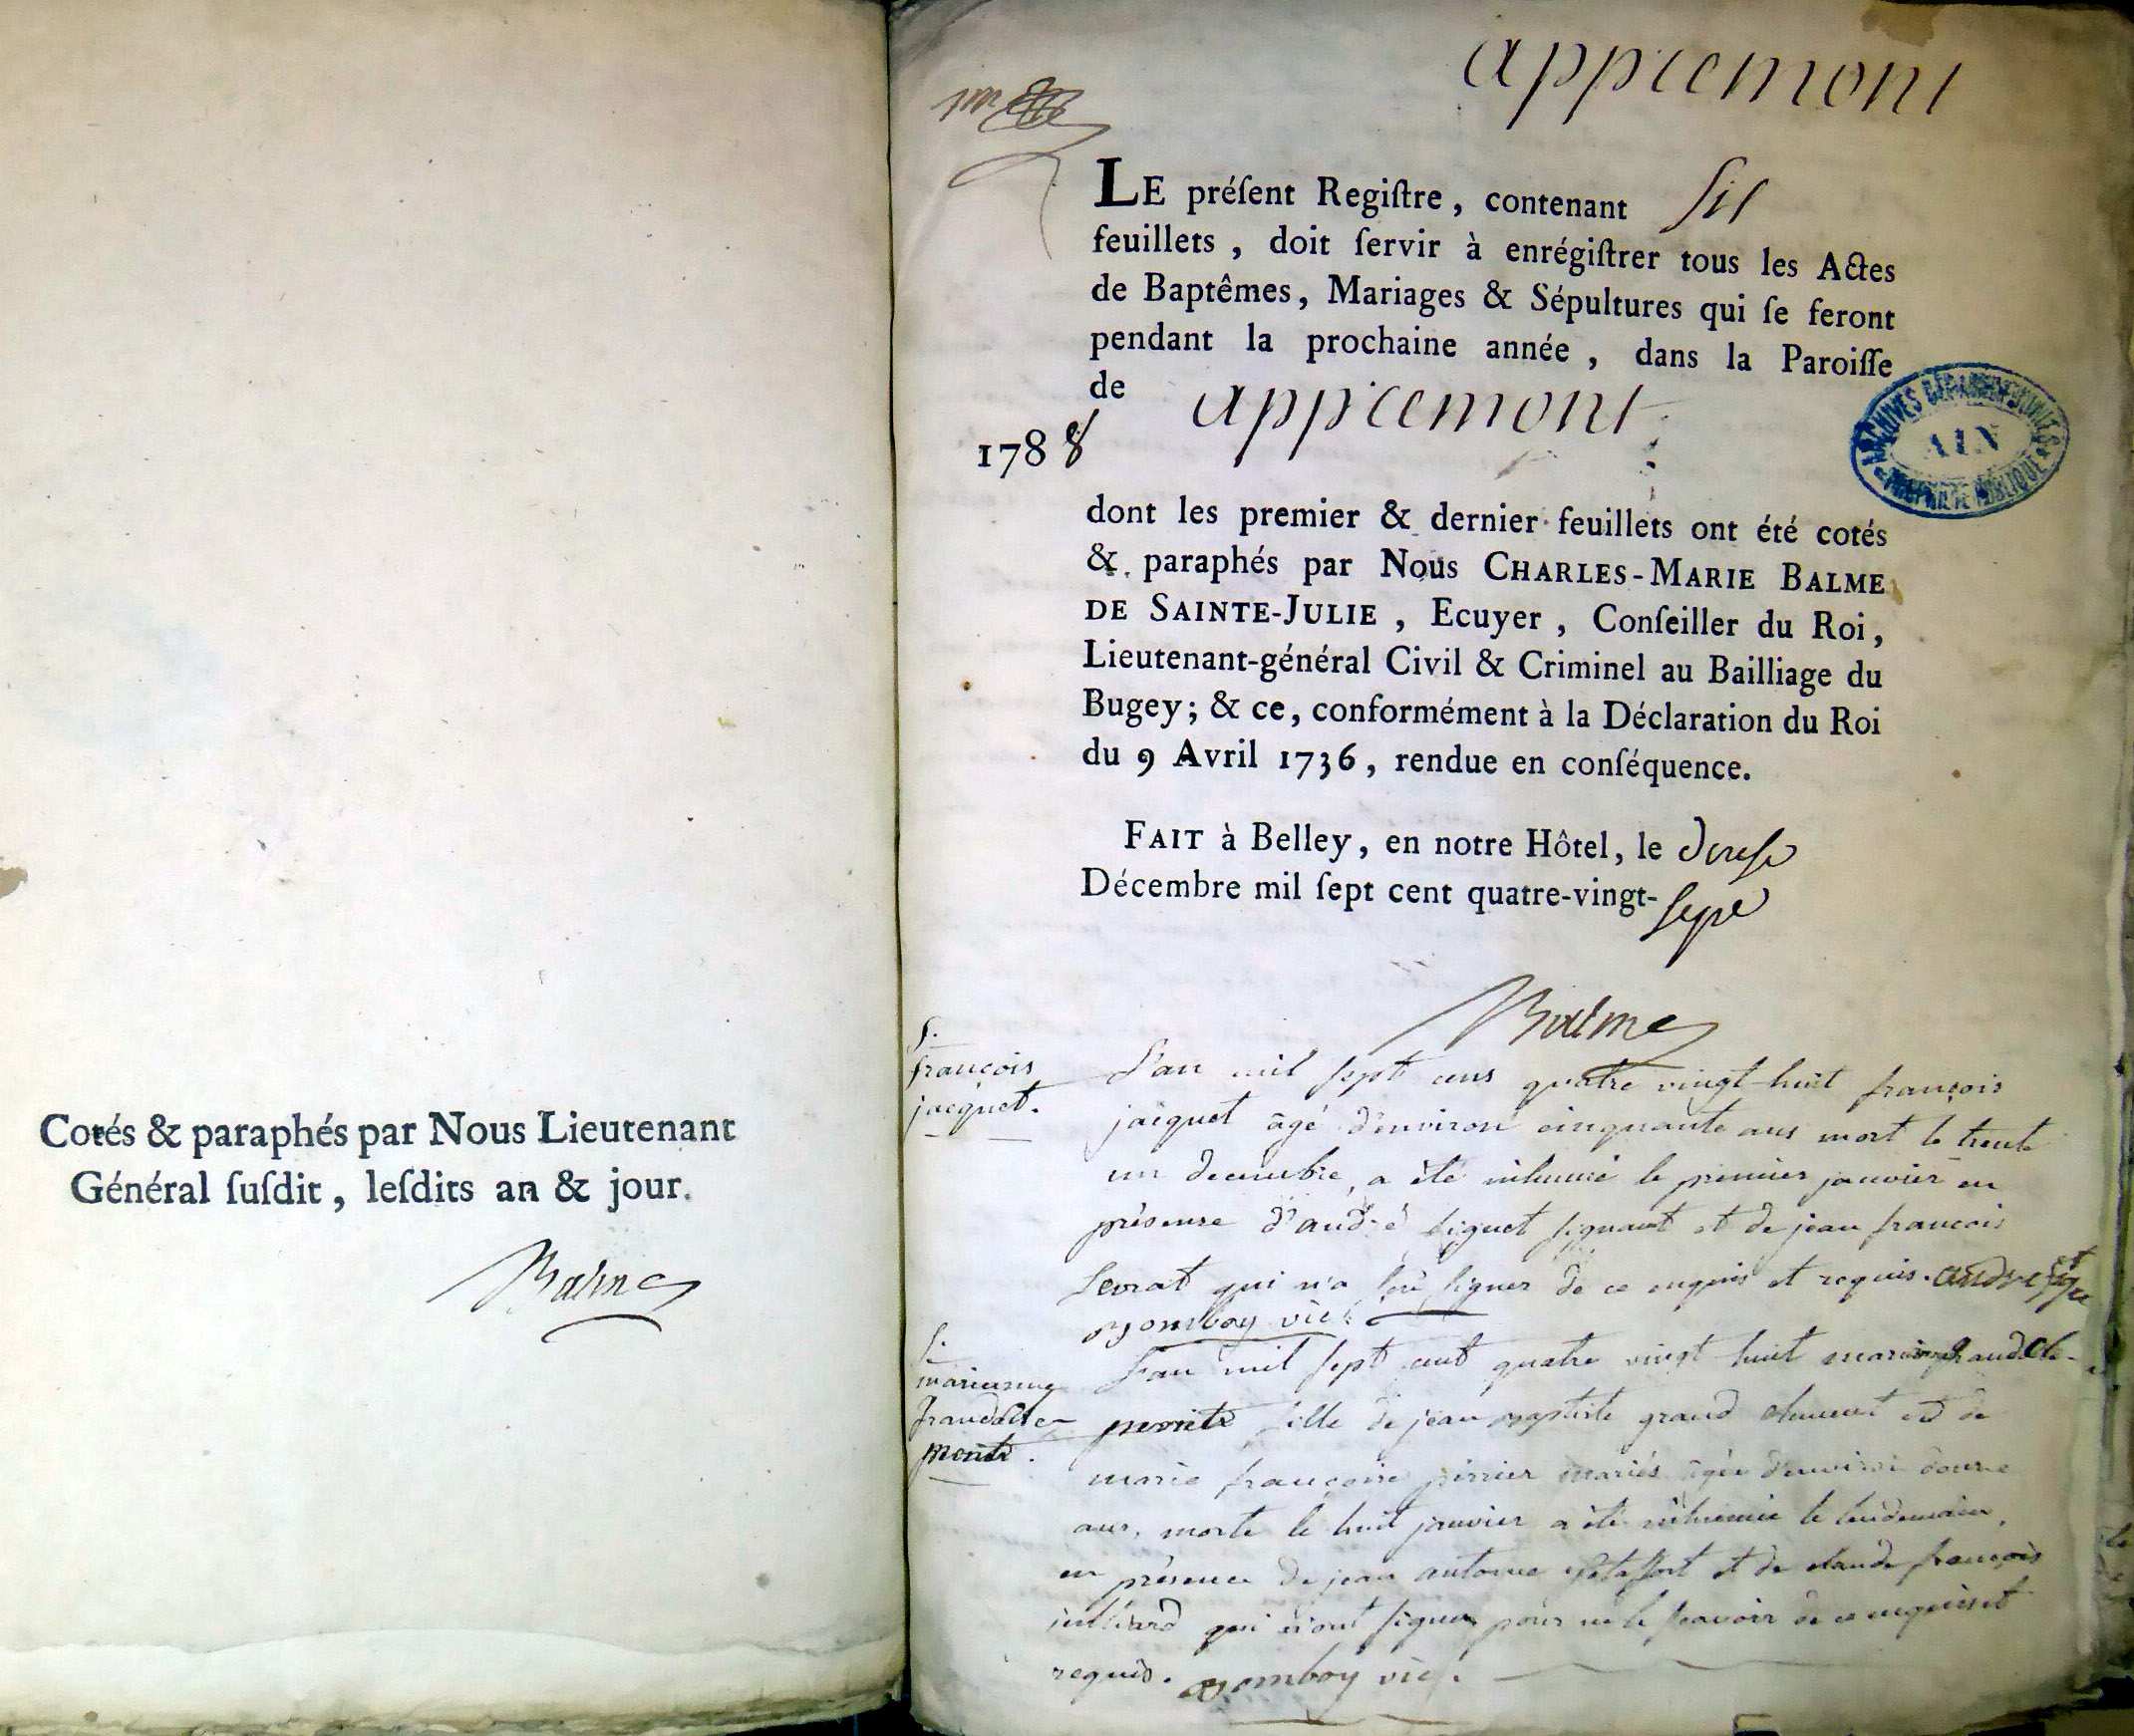 Cotés & paraphés par Nous Lieutenant
Général ſuſdit, leſdits an & jour.
Balme
appremont
LE préſent Regiſtre, contenant six
feuillets, doit ſervir à enrégiſtrer tous les Actes
de Baptêmes, Mariages & Sépultures qui ſe feront
pendant la prochaine année, dans la Paroiſſe
de appremont
1788
ARCHIVES DÉPARTEMENTALES
AIN
PROPRIÉTÉ PUBLIQUE
dont les premier & dernier feuillets ont été cotés
& paraphés par Nous CHARLES-MARIE BALME
DE SAINTE-JULIE, Ecuyer, Conſeiller du Roi,
Lieutenant-général Civil & Criminel au Bailliage du
Bugey; & ce, conformément à la Déclaration du Roi
du 9 Avril 1736, rendue en conſéquence.
FAIT à Belley, en notre Hôtel, le
Décembre mil ſept cent quatre-vingt-sept
Balme
S.
françois
jacquet.
L'an mil sept cens quatre vingt-huit françois
jacquet âgé d'environ cinquante ans mort le trente
un decembre, a été inhumé le premier janvier en
présence d'andré signant et de jean francois
Levrat qui n'a sçu signer de ce enquis et requis. andre
vic.
S.
grandcle-
mente.
L'an mil sept cent quatre vingt huit grandcle-
fille de jean baptiste grand clement et de
marie françoise perrier mariés âgée d'environ douze
ans, morte le huit janvier a été inhumée le lendemain,
en présence de jean antoine et de claude françois
qui n'ont signé pour ne le sçavoir de ce enquis et
requis. vic.